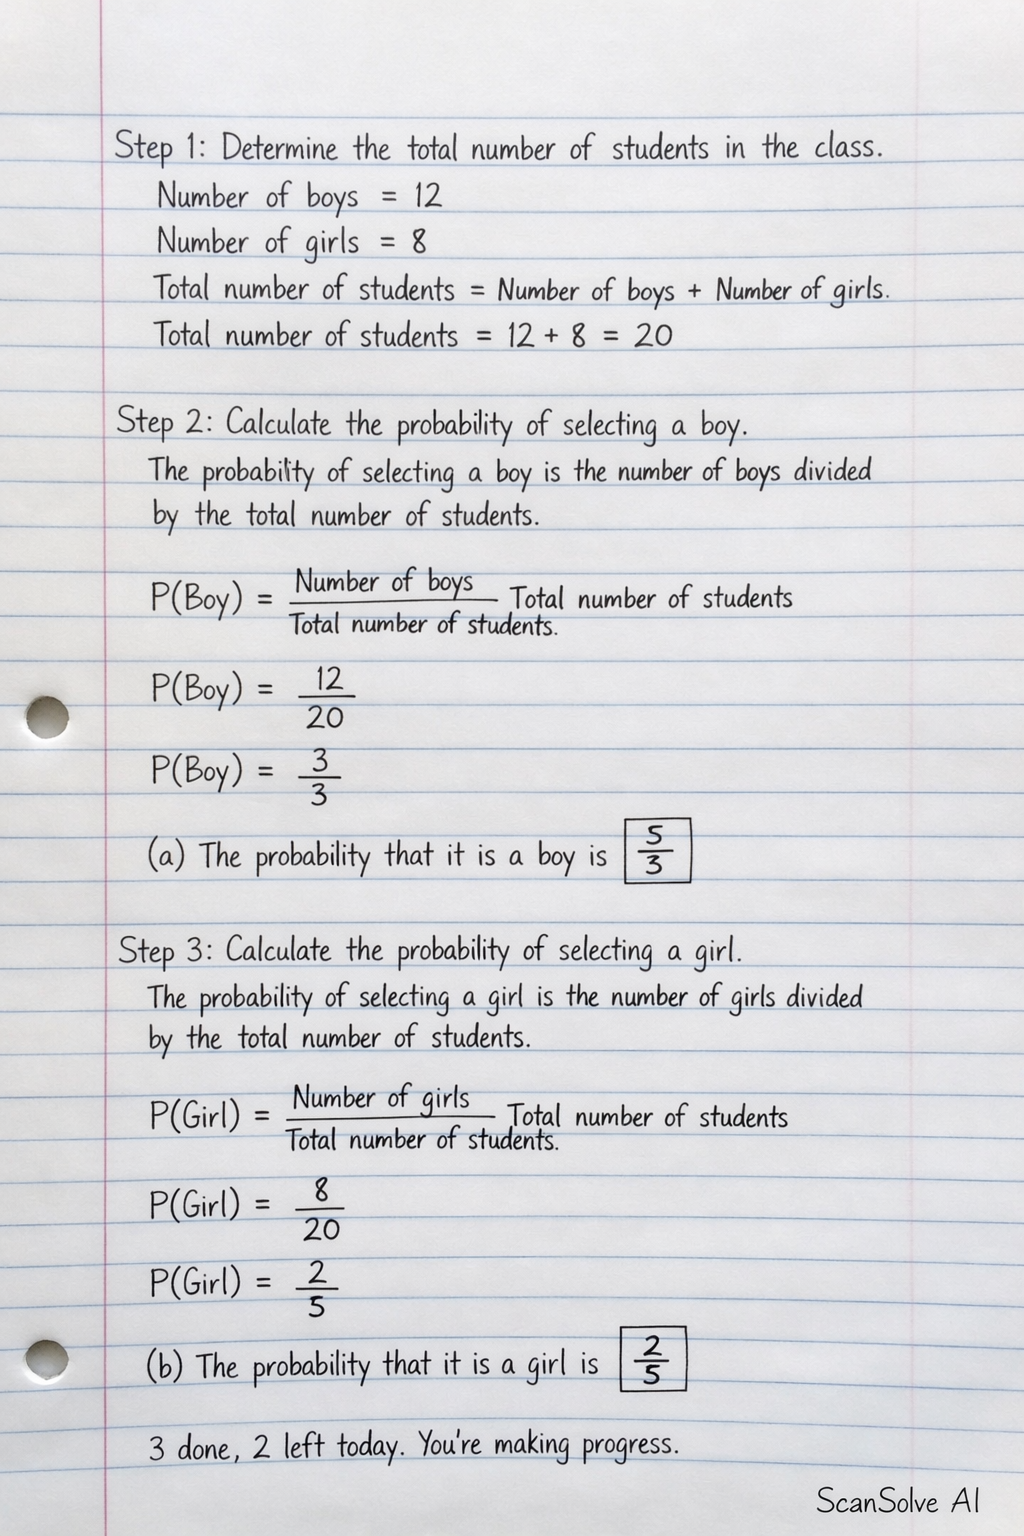 Step 1: Determine the total number of students in the class.
Number of boys = 12
Number of girls = 8
Total number of students = Number of boys + Number of girls.
Total number of students = 12 + 8 = 20
Step 2: Calculate the probability of selecting a boy.
The probability of selecting a boy is the number of boys divided
by the total number of students.
P(Boy) = Number of boys / Total number of students. Total number of students
P(Boy) = 12/20
P(Boy) = 3/3
(a) The probability that it is a boy is 5/3
Step 3: Calculate the probability of selecting a girl.
The probability of selecting a girl is the number of girls divided
by the total number of students.
P(Girl) = Number of girls / Total number of students. Total number of students
P(Girl) = 8/20
P(Girl) = 2/5
(b) The probability that it is a girl is 2/5
3 done, 2 left today. You're making progress.
ScanSolve AI